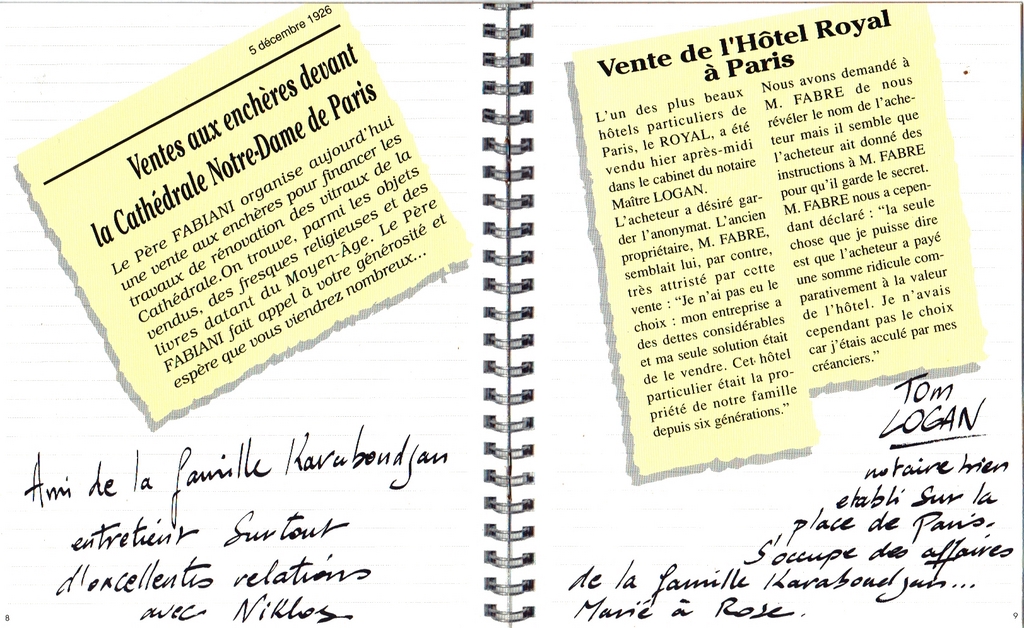 5 décembre 1926
Ventes aux enchères devant
la Cathédrale Notre-Dame de Paris
Le Père FABIANI organise aujourd'hui
une vente aux enchères pour financer les
travaux de rénovation des vitraux de la
Cathédrale.On trouve, parmi les objets
vendus, des fresques religieuses et des
livres datant du Moyen-Âge. Le Père
FABIANI fait appel à votre générosité et
espère que vous viendrez nombreux...
Ami de la famille Karaboudjan
entretient Surtout
d'excellentes relations
avec Niklos
8
Vente de l'Hôtel Royal
à Paris
L'un des plus beaux
hôtels particuliers de
Paris, le ROYAL, a été
vendu hier après-midi
dans le cabinet du notaire
Maître LOGAN.
L'acheteur a désiré gar-
der l'anonymat. L'ancien
propriétaire, M. FABRE,
semblait lui, par contre,
très attristé par cette
vente : “Je n'ai pas eu le
choix : mon entreprise a
des dettes considérables
et ma seule solution était
de le vendre. Cet hôtel
particulier était la pro-
priété de notre famille
depuis six générations.”
Nous avons demandé à
M. FABRE de nous
révéler le nom de l'ache-
teur mais il semble que
l'acheteur ait donné des
instructions à M. FABRE
pour qu'il garde le secret.
M. FABRE nous a cepen-
dant déclaré : “la seule
chose que je puisse dire
est que l'acheteur a payé
une somme ridicule com-
parativement à la valeur
de l'hôtel. Je n'avais
cependant pas le choix
car j'étais acculé par mes
créanciers.”
TOM
LOGAN
notaire bien
etabli Sur la
place de Paris.
S'occupe des affaires
de la famille Karaboudjan...
Marié à Rose.
9